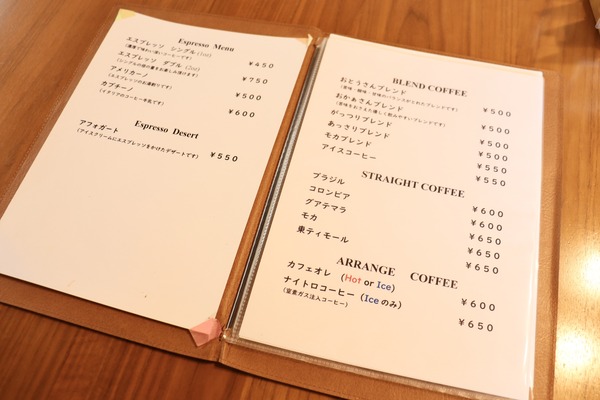 Espresso Menu
エスプレッソ シングル(1oz) ¥450
(濃厚で味わい深いコーヒーです)
エスプレッソ ダブル(2oz) ¥750
(シングルの倍の量をお楽しみ頂けます)
アメリカーノ ¥500
(エスプレッソのお湯割りです)
カプチーノ ¥600
(イタリアのコーヒー牛乳です)
Espresso Desert
アフォガート ¥550
(アイスクリームにエスプレッソをかけたデザートです)
BLEND COFFEE
おとうさんブレンド ¥500
おかあさんブレンド ¥500
がっつりブレンド ¥500
あっさりブレンド ¥500
モカブレンド ¥550
アイスコーヒー ¥550
STRAIGHT COFFEE
ブラジル ¥600
コロンビア ¥600
グアテマラ ¥650
モカ ¥650
東ティモール ¥650
ARRANGE COFFEE
カフェオレ (Hot or Ice) ¥600
ナイトロコーヒー (Iceのみ) ¥650
(窒素ガス注入コーヒー)